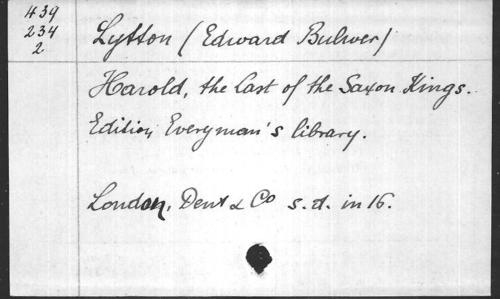 439
234
2
Lytton (Edward Bulwer)
Harold, the Last of the Saxon Kings.
Edition Everyman's library.
London, Dent & Co s.d. in 16.